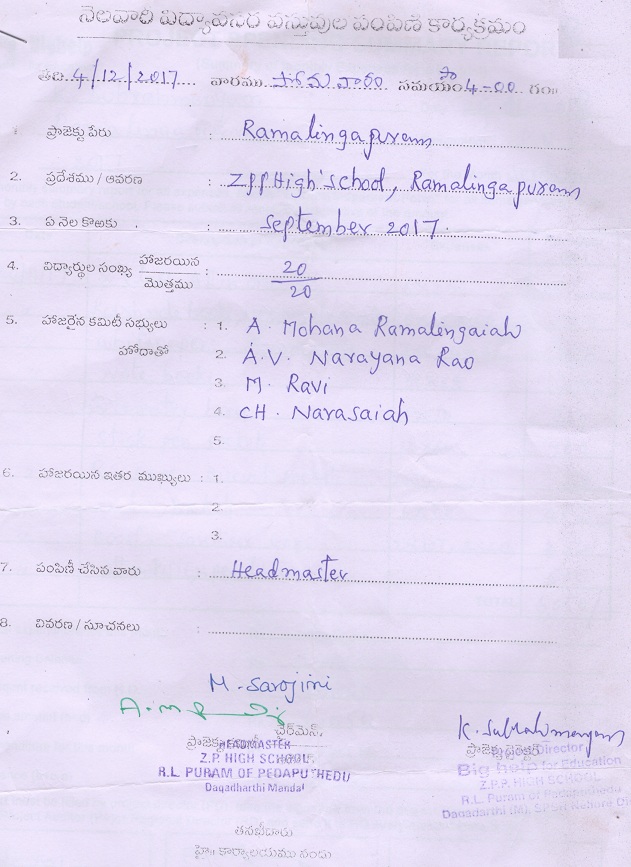 నెలవారి విద్యావసర వస్తువుల పంపిణి కార్యక్రమం
తేది 4/12/2017 వారము సోమవారం సమయం సా 4-00 గం॥
1. ప్రాజెక్టు పేరు : Ramalingapuram
2. ప్రదేశము / ఆవరణ : Z.P.P High School, Ramalingapuram
3. ఏ నెల కొఱకు : September 2017.
4. విద్యార్థుల సంఖ్య హాజరయిన / మొత్తము : 20 / 20
5. హాజరైన కమిటీ సభ్యులు : 1. A. Mohana Ramalingaiah
హోదాతో 2. A.V. Narayana Rao
3. M. Ravi
4. CH. Narasaiah
5.
6. హాజరయిన ఇతర ముఖ్యులు : 1.
2.
3.
7. పంపిణీ చేసిన వారు : Headmaster
8. వివరణ / సూచనలు :
M. Sarojini
K. Subrahmanyam
ప్రాజెక్టు చైర్‌మెన్, ప్రాజెక్టు డైరెక్టర్
HEADMASTER
Z.P. HIGH SCHOOL
R.L. PURAM OF PEDAPUTHEDU
Dagadharthi Mandal
Director
Big help for Education
Z.P.P. HIGH SCHOOL
R.L. Puram of Pedaputhedu
Dagadarthi (M), SPSR Nellore